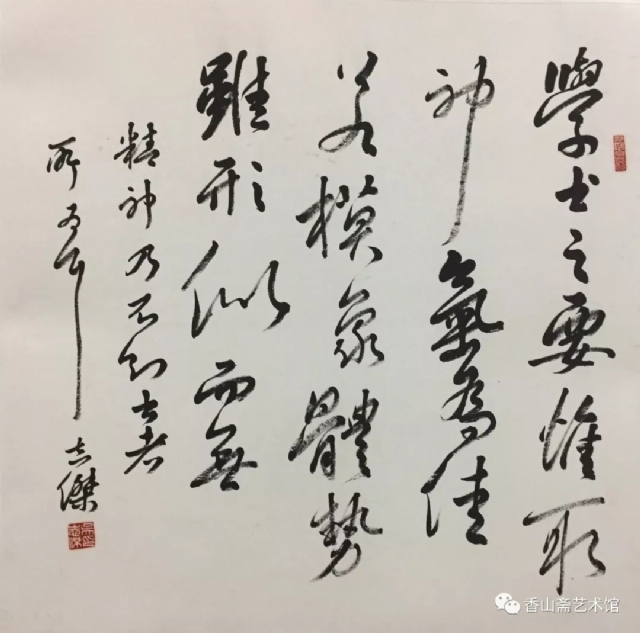 學書之要惟取
神氣為佳
若模象體勢
雖形似而無
精神乃不知書者
所為耳
志傑
香山斋艺术馆